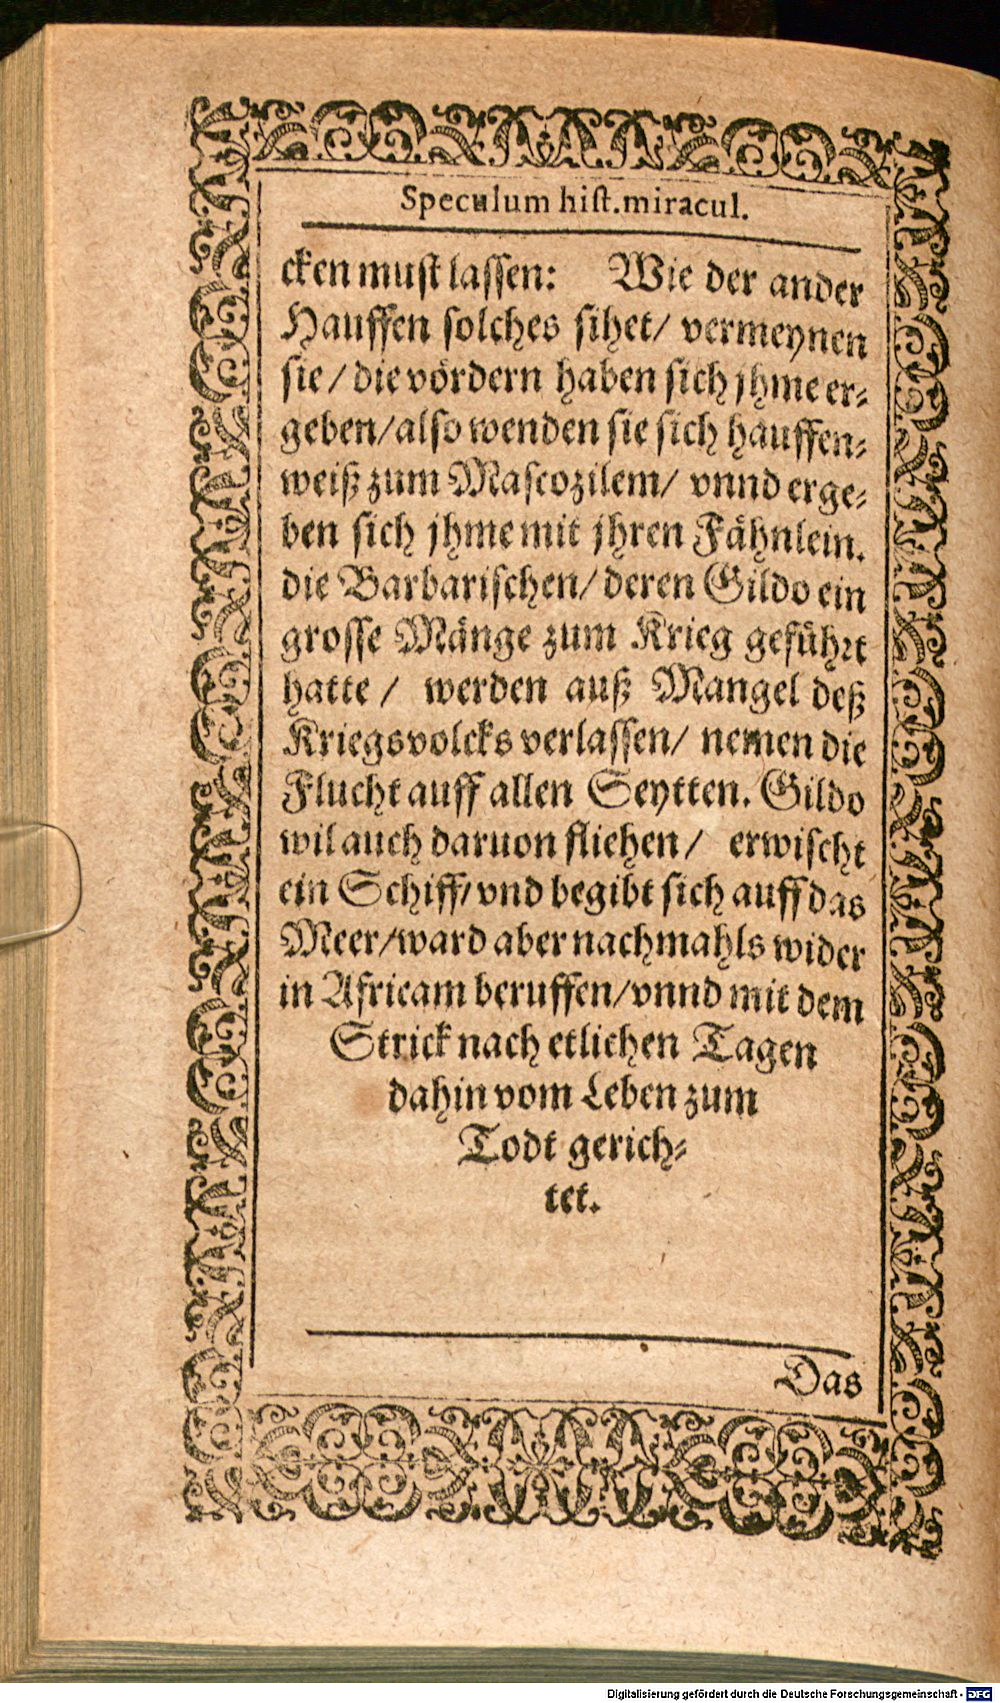 Speculum hist. miracul.
cken must lassen: Wie der ander
Hauffen solches sihet/ vermeynen
sie/ die vördern haben sich jhme er-
geben/ also wenden sie sich hauffen-
weiß zum Mascozilem/ vnnd erge-
ben sich jhme mit jhren Fähnlein.
die Barbarischen/ deren Gildo ein
grosse Mänge zum Krieg geführt
hatte/ werden auß Mangel deß
Kriegsvolcks verlassen/ nemen die
Flucht auff allen Seytten. Gildo
wil auch daruon fliehen/ erwischt
ein Schiff/ vnd begibt sich auff das
Meer/ ward aber nachmahls wider
in Africam beruffen/ vnnd mit dem
Strick nach etlichen Tagen
dahin vom Leben zum
Todt gerich-
tet.
Das
Digitalisierung gefördert durch die Deutsche Forschungsgemeinschaft - DFG